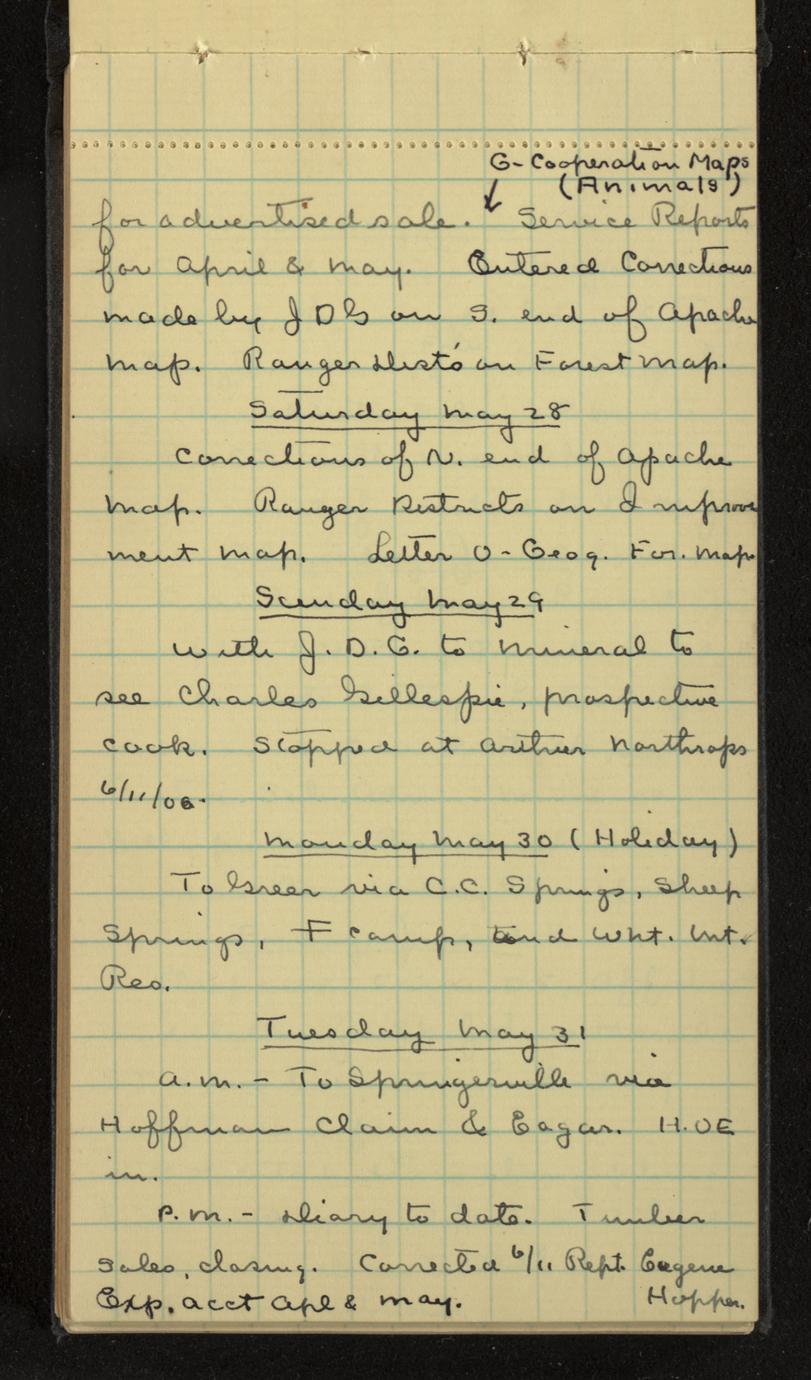 G- Cooperation Maps
(Animals)
for advertised sale. Service Reports
for April & May. Entered Corrections
made by J D G on S. end of Apache
Map. Ranger Dist's on Forest Map.
Saturday May 28
Corrections of N. end of Apache
Map. Ranger Districts on Improve
ment Map. Letter O- Geog. For. Map
Sunday May 29
With J. D. G. to Mineral to
see Charles Gillespie, prospective
cook. Stopped at Arthur Northrops
6/11/06.
Monday May 30 (Holiday)
To Greer via C.C. Springs, Sheep
Springs, F camp, and Wht. Mt.
Res.
Tuesday May 31
A.M. - To Springerville via
Hoffman Claim & Eagar. H.O.E
in.
P.M. - Diary to date. Timber
Sales, closing. Corrected 6/11 Rept. Eugene
Exp. acct Apl & May. Hopper.